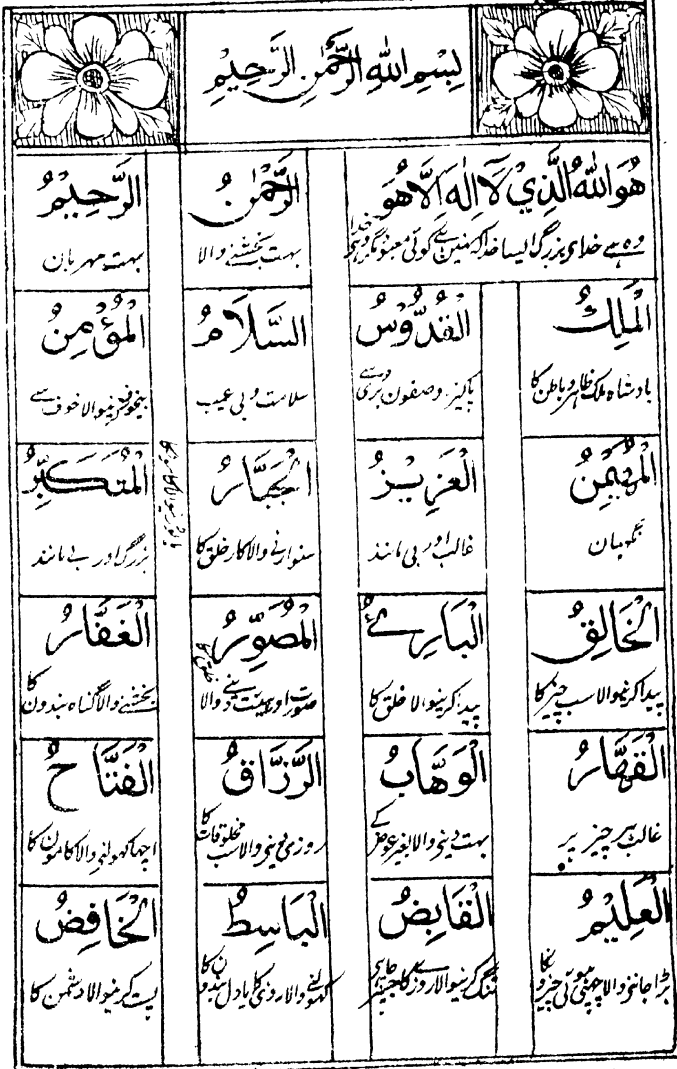 بِسْمِ اللّٰهِ الرَّحْمٰنِ الرَّحِيْمِ
هُوَ اللّٰهُ الَّذِيْ لَآ اِلٰهَ اِلَّا هُوَ
وہ ہے خدای بزرگ ایسا خدا کہ نہیں ہے کوئی معبود مگر وہی
الرَّحْمٰنُ
بہت بخشنے والا
الرَّحِيْمُ
بہت مہربان
الْمَلِكُ
بادشاہ ملک ظاہر و باطن کا
الْقُدُّوْسُ
السَّلَامُ
سلامت و بی عیب
الْمُؤْمِنُ
الْمُهَيْمِنُ
نگہبان
الْعَزِيْزُ
غالب اور بی مانند
الْجَبَّارُ
سنوارنے والا کار خلق کا
الْمُتَكَبِّرُ
بزرگ اور بے مانند
الْخَالِقُ
پیدا کرنیوالا سب چیز کا
الْبَارِئُ
پیدا کرنیوالا خلق کا
الْمُصَوِّرُ
صورت اور ہیئت دینے والا
الْغَفَّارُ
بخشنے والا گناہ بندون کا
الْقَهَّارُ
غالب ہر چیز پر
الْوَهَّابُ
بہت دینی والا بغیر عوض کے
الرَّزَّاقُ
روزی دینی والا سب مخلوقات کا
الْفَتَّاحُ
اچھا کھولنی والا کامون کا
الْعَلِيْمُ
بڑا جاننے والا
الْقَابِضُ
تنگ کرنیوالا
الْبَاسِطُ
کھولنے والا روزی کا یا دل بندون کا
الْخَافِضُ
پست کرنیوالا دشمن کا